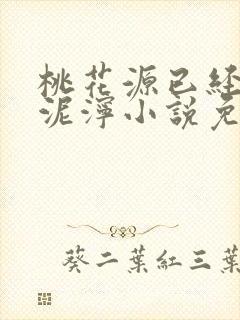 桃花源已經
泥濘小說免
葵二葉紅三葉